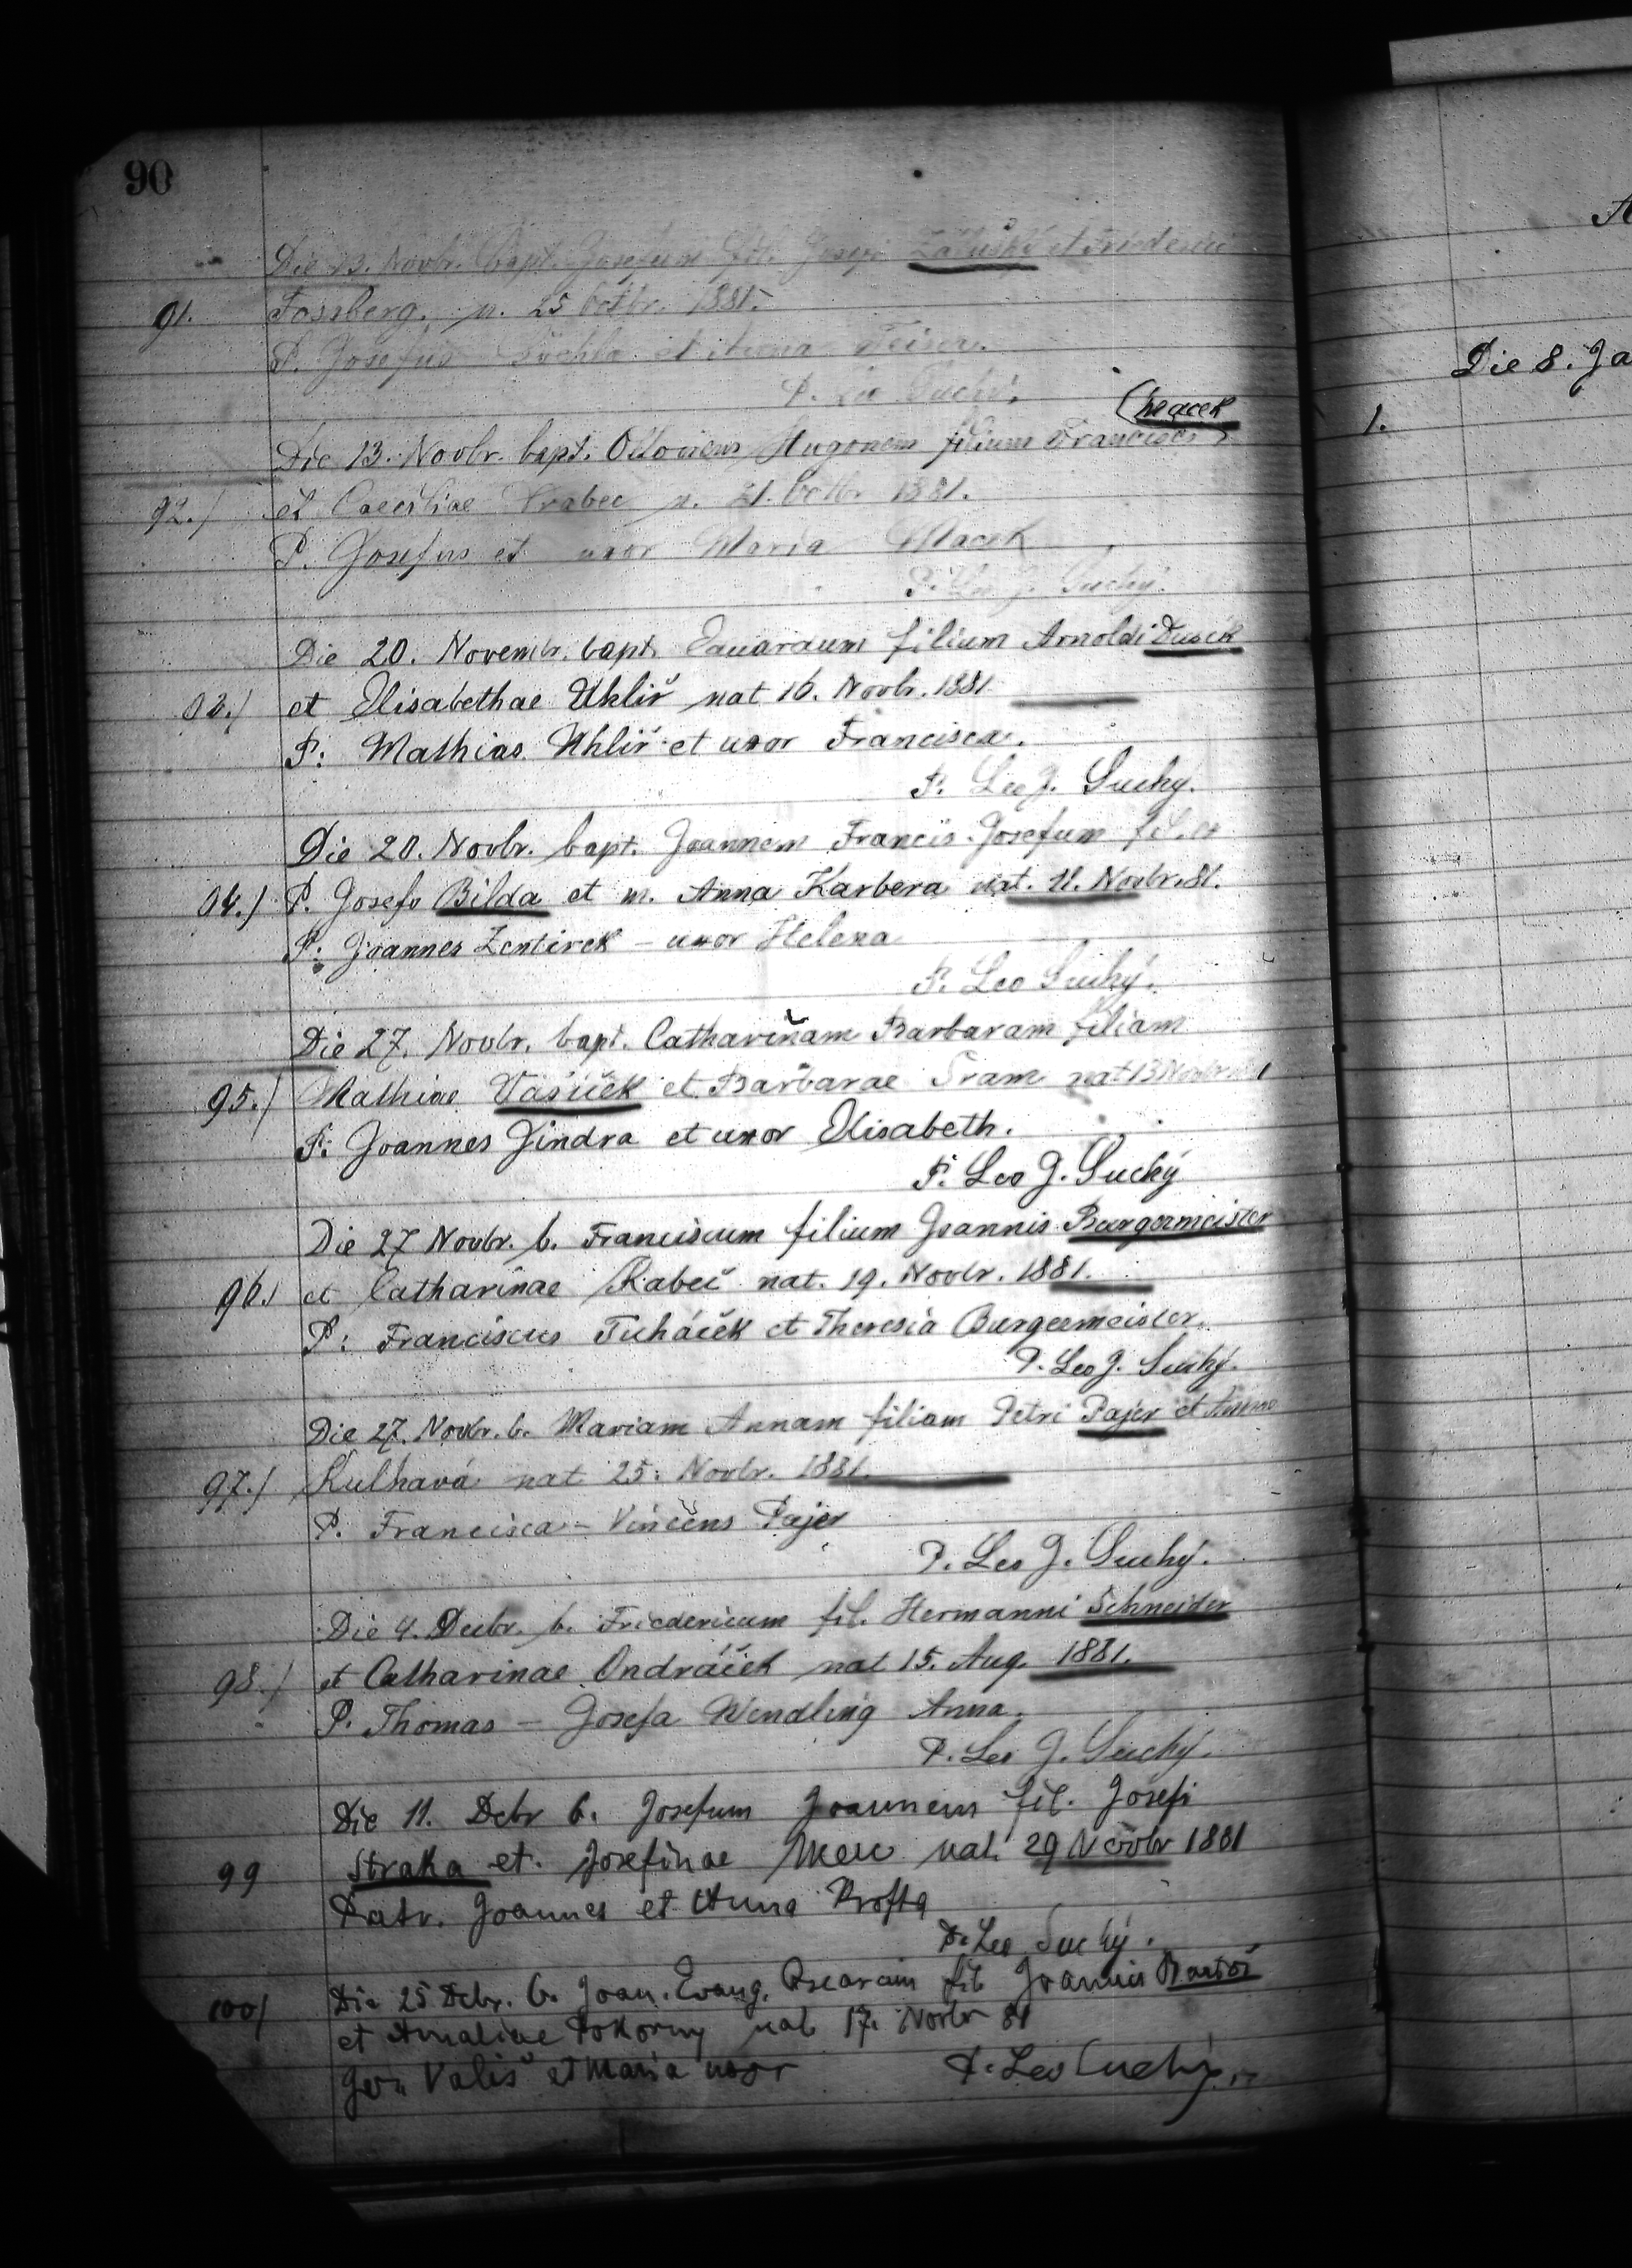 90
Die 13. Novbr. bapt. Josefum fil. Josefi Zálušký et Friederici
91. Fossberg. n. 25 Octbr. 1881.
P. Josefus et Anna
P. Leo Suchý.
Macek
Die 13. Novbr. bapt. Ottonem Hugonem filium Francisci
92./ et Caeciliae Vrabec n. 21. Octbr. 1881.
P. Josefus et uxor Maria Macek
P. Leo J. Suchý.
Die 20. Novembr. bapt. Eduardum filium Arnoldi Dusek
93./ et Elisabethae Uhliř nat 16. Novbr. 1881
P: Mathias Uhliř et uxor Francisca.
P. Leo J. Suchý.
Die 20. Novbr. bapt. Joannem Francis. Josefum fil. ex
94./ P. Josefo Bilda et m. Anna Karbera nat. 11. Novbr. 81.
P: Joannes Zentirek – uxor Helena
P. Leo Suchý.
Die 27. Novbr. bapt. Catharinam Barbaram filiam
95./ Mathiae Vašiček et Barbarae Sram nat 13 Novbr
P: Joannes Jindra et uxor Elisabeth.
P. Leo J. Suchý
Die 27 Novbr. b. Franciscum filium Joannis Burgermeister
96./ et Catharinae Rabeč nat. 19. Novbr. 1881.
P: Franciscus Tuháček et Theresia Burgermeister.
P. Leo J. Suchý.
Die 27. Novbr. b. Mariam Annam filiam Petri Pajer et Annae
97./ Kulhavá nat 25. Novbr. 1881.
P. Francisca – Vincens Pajer
P. Leo J. Suchý.
Die 4. Decbr. b. Friedericum fil. Hermanni Schneider
98./ et Catharinae Ondráček nat 15. Aug. 1881.
P. Thomas – Josefa Wendling Anna.
P. Leo J. Suchý.
Die 11. Debr b. Josefum Joannem fil. Josefi
99 Straka et Josefinae nat. 29 Novbr 1881
Patr. Joannes et Anna
P. Leo Suchý.
Die 25 Debr. b. Joan. Evang. Oscarum fil Joannis Bartoš
100/ et Amaliae Pokorny nat 17. Novbr 81
Vališ et Maria uxor P. Leo Suchý.
A
Die 8. Ja
1.